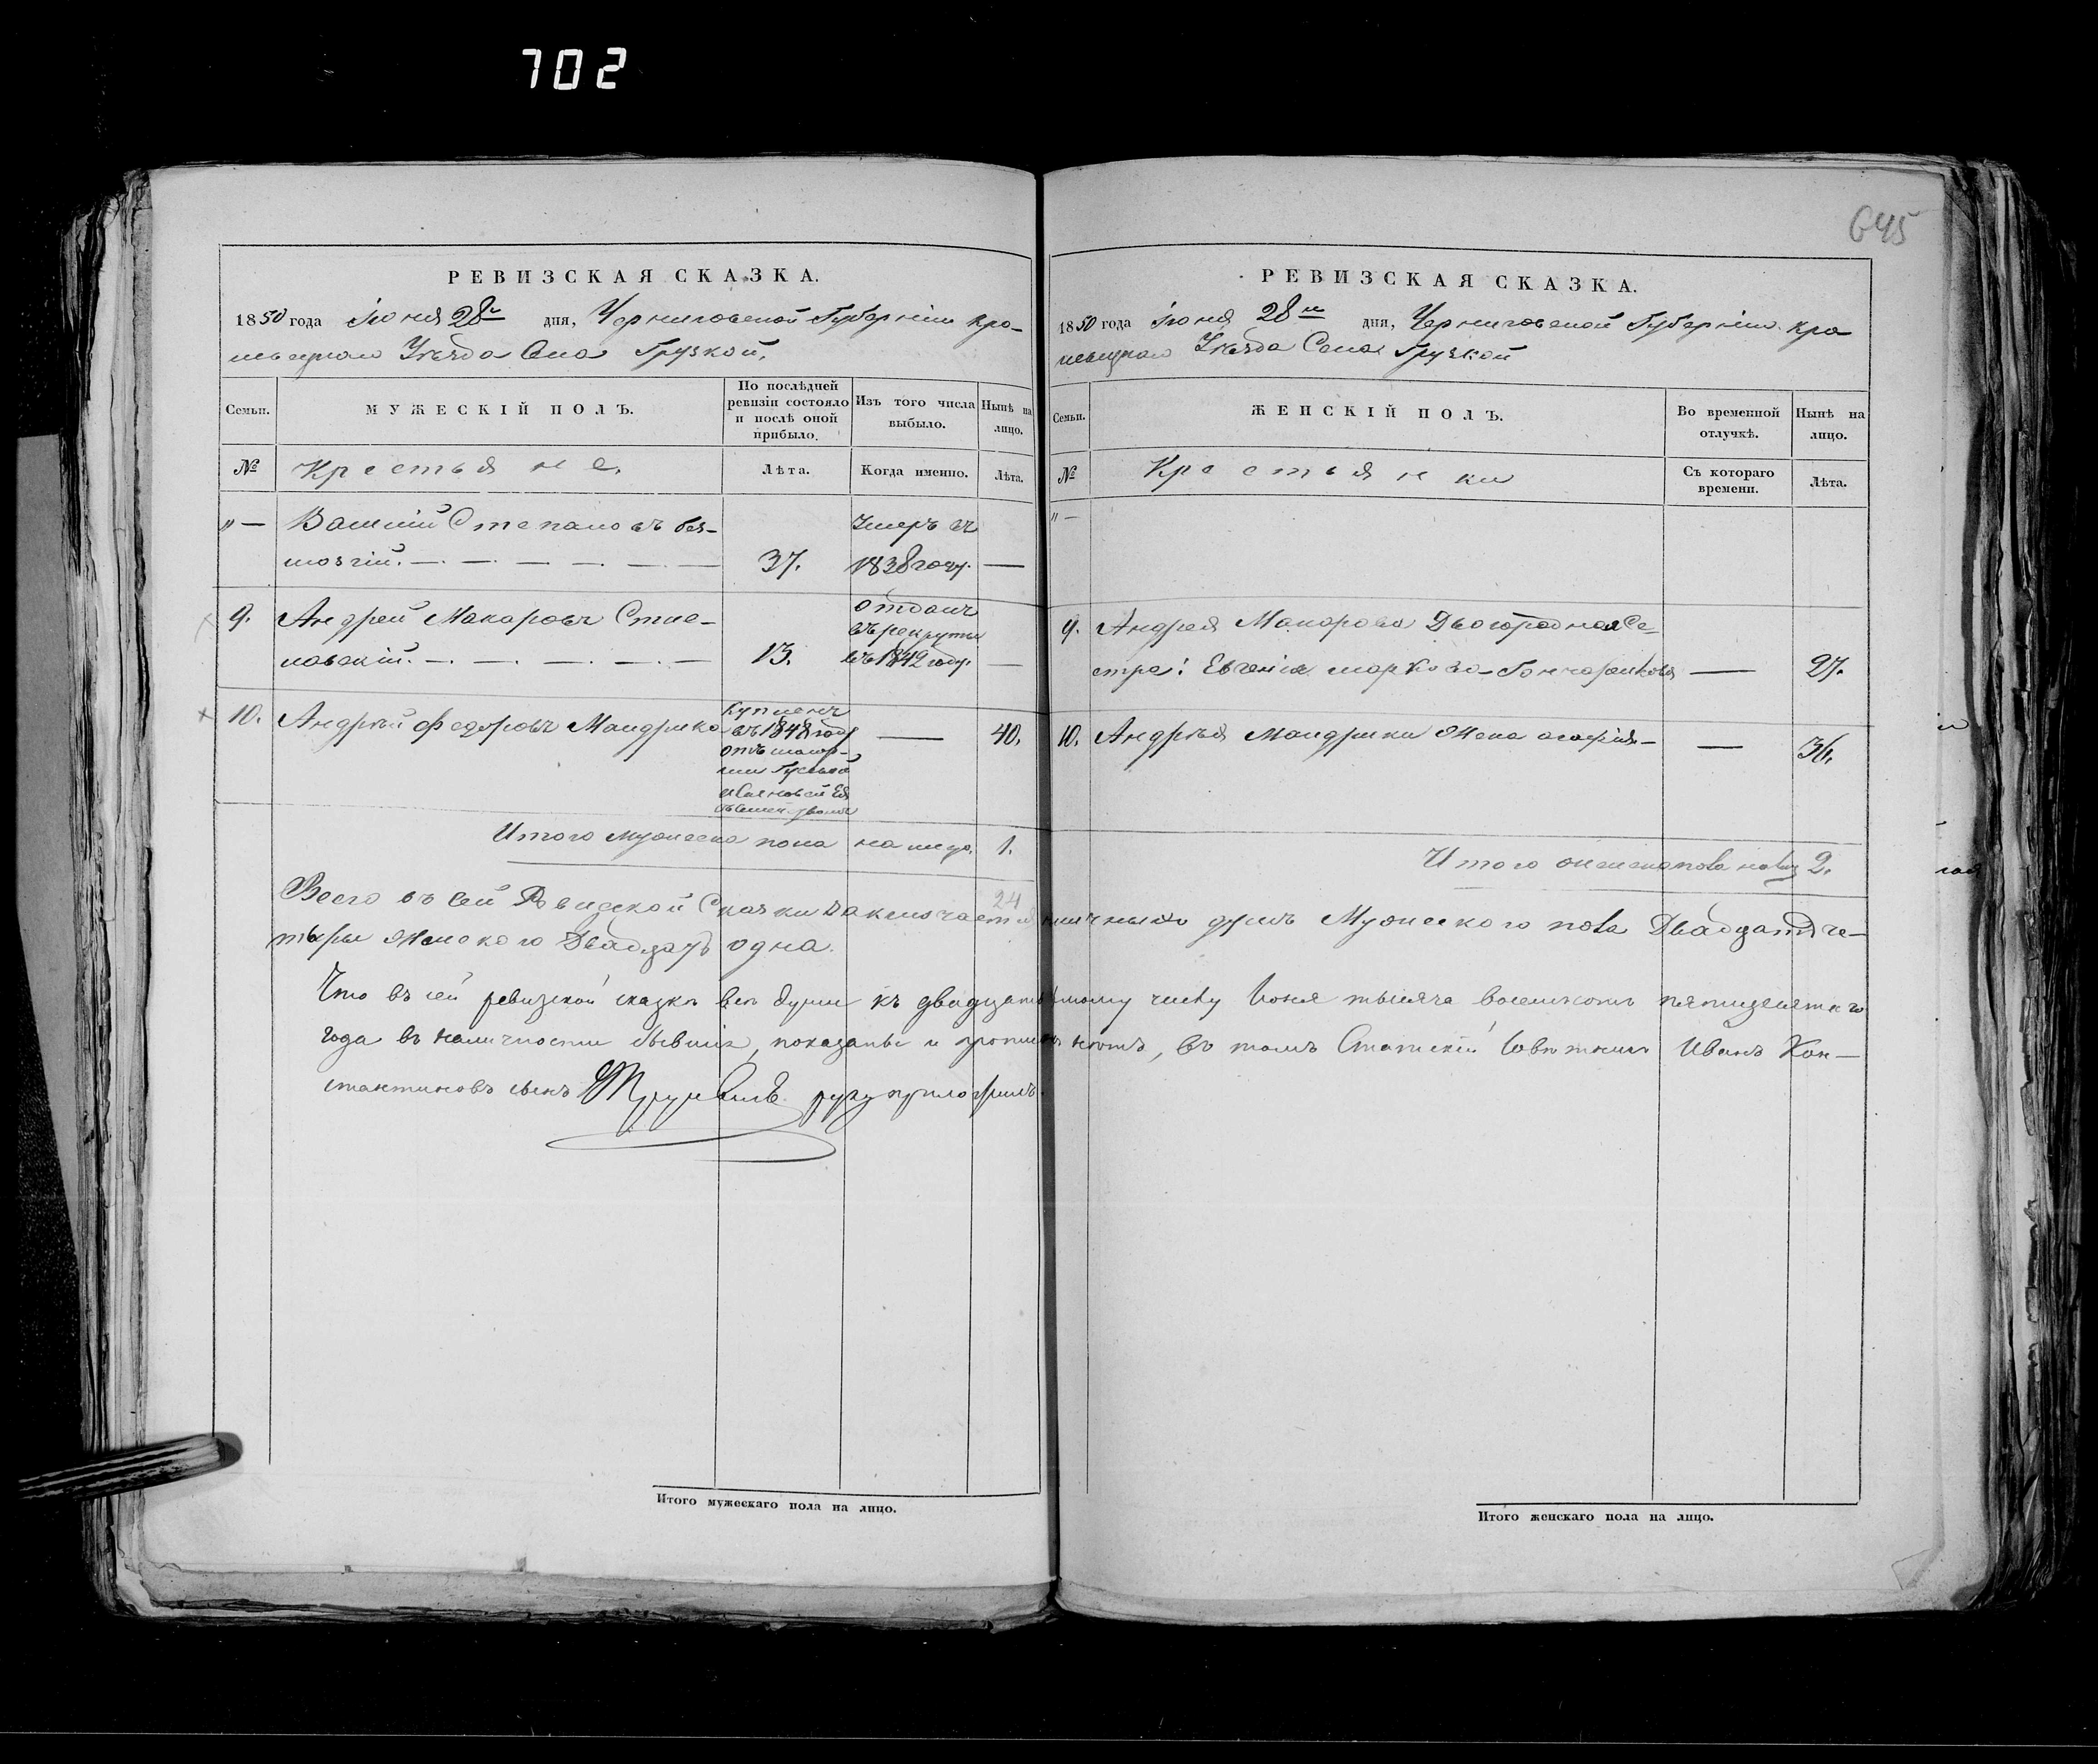 702
645
РЕВИЗСКАЯ СКАЗКА.
1850 года Іюня 28го дня, Черниговской Губерніи Кро-
левецкаго Уѣзда Села Грузкой.
Семьи.
МУЖЕСКІЙ ПОЛЪ.
По послѣдней ревизіи состояло и послѣ оной прибыло.
Изъ того числа выбыло.
Нынѣ на лицо.
№
Крестьяне.
Лѣта.
Когда именно.
Лѣта.
"—
Василій Степановъ без-
мозгій. — — — — —
37.
Умеръ въ
1838 году.
—
9.
Андрей Макаровъ
— — — —
13.
отданъ
въ рекруты
въ 1842 году.
—
10.
Андрѣй Федоровъ Мандрыка
Купленъ
въ 1848 году
отъ
—
40.
Итого мужеска пола на лицо. 1.
РЕВИЗСКАЯ СКАЗКА.
1850 года Іюня 28го дня, Черниговской Губерніи Кро
левецкаго Уѣзда Села Грузкой
Семьи.
ЖЕНСКІЙ ПОЛЪ.
Во временной отлучкѣ.
Нынѣ на лицо.
№
Крестьянки
Съ котораго времени.
Лѣта.
"—
9.
Андрея Макарова Двоюродная Се-
стра: Евгенія Маркова
—
27.
10.
Андрѣя Мандрыки Жена Агафія —
—
36.
Итого женска пола на лицо 2.
24
Всего въ сей Ревизской Сказки заключается наличныхъ душъ Мужеского пола Двадцать че-
тыры Женского Двадцать одна.
Что въ сей ревизской сказкѣ всѣ души къ двадцать числу Іюня тысяча восемьсотъ пятидесятаго
года въ наличности бывшіе, показаны и нѣтъ, въ томъ Статскій Совѣтникъ Иванъ Кон-
стантиновъ сынъ руку приложилъ.
Итого мужескаго пола на лицо.
Итого женскаго пола на лицо.